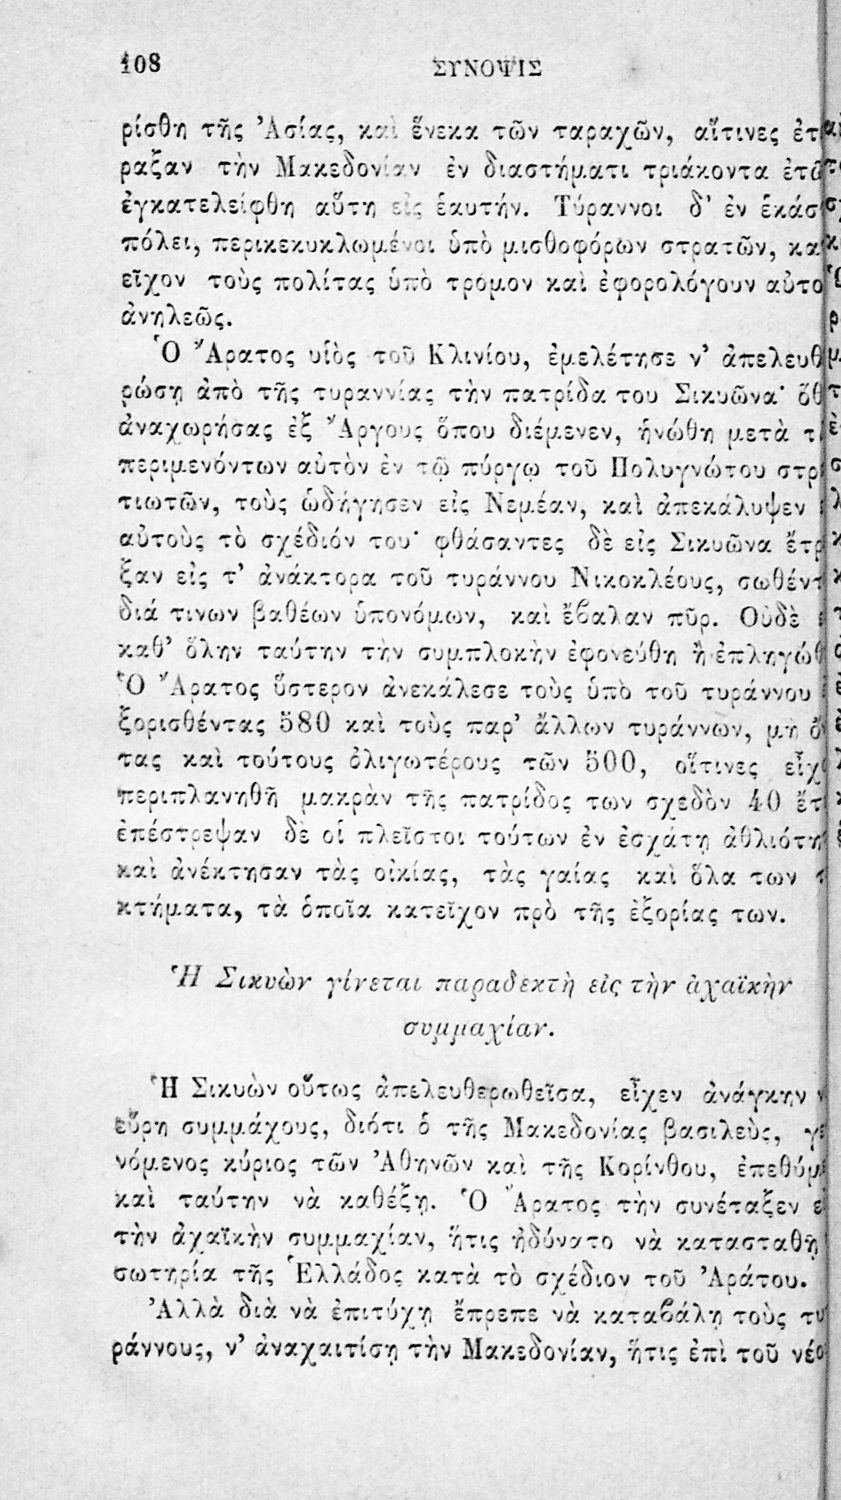 108 ΣΥΝΟΨΙΣ
ρίσθη τῆς Ἀσίας, καὶ ἕνεκα τῶν ταραχῶν, αἵτινες
ραξαν τὴν Μακεδονίαν ἐν διαστήματι τριάκοντα
ἐγκατελείφθη αὕτη εἰς ἑαυτήν. Τύραννοι δ' ἐν
πόλει, περικεκυκλωμένοι ὑπὸ μισθοφόρων στρατῶν,
εἶχον τοὺς πολίτας ὑπὸ τρόμον καὶ ἐφορολόγουν
ἀνηλεῶς.
Ὁ Ἄρατος υἱὸς τοῦ Κλινίου, ἐμελέτησε ν'
ρώσῃ ἀπὸ τῆς τυραννίας τὴν πατρίδα του Σικυῶνα·
ἀναχωρήσας ἐξ Ἄργους ὅπου διέμενεν, ἡνώθη μετὰ
περιμενόντων αὐτὸν ἐν τῷ πύργῳ τοῦ Πολυγνώτου
τιωτῶν, τοὺς ὡδήγησεν εἰς Νεμέαν, καὶ ἀπεκάλυψεν
αὐτοὺς τὸ σχέδιόν του· φθάσαντες δὲ εἰς Σικυῶνα
ξαν εἰς τ' ἀνάκτορα τοῦ τυράννου Νικοκλέους,
διά τινων βαθέων ὑπονόμων, καὶ ἔβαλαν πῦρ. Οὐδὲ
καθ' ὅλην ταύτην τὴν συμπλοκὴν ἐφονεύθη ἢ
Ὁ Ἄρατος ὕστερον ἀνεκάλεσε τοὺς ὑπὸ τοῦ τυράννου
ξορισθέντας 580 καὶ τοὺς παρ' ἄλλων τυράννων, μὴ
τας καὶ τούτους ὀλιγωτέρους τῶν 500, οἵτινες
περιπλανηθῆ μακρὰν τῆς πατρίδος των σχεδὸν 40
ἐπέστρεψαν δὲ οἱ πλεῖστοι τούτων ἐν ἐσχάτῃ
καὶ ἀνέκτησαν τὰς οἰκίας, τὰς γαίας καὶ ὅλα των
κτήματα, τὰ ὁποῖα κατεῖχον πρὸ τῆς ἐξορίας των.
Ἡ Σικυὼν γίνεται παραδεκτὴ εἰς τὴν ἀχαϊκὴν
συμμαχίαν.
Ἡ Σικυὼν οὕτως ἀπελευθερωθεῖσα, εἶχεν ἀνάγκην
εὕρῃ συμμάχους, διότι ὁ τῆς Μακεδονίας βασιλεὺς,
νόμενος κύριος τῶν Ἀθηνῶν καὶ τῆς Κορίνθου,
καὶ ταύτην νὰ καθέξῃ. Ὁ Ἄρατος τὴν συνέταξεν
τὴν ἀχαϊκὴν συμμαχίαν, ἥτις ἠδύνατο νὰ κατασταθῇ
σωτηρία τῆς Ἑλλάδος κατὰ τὸ σχέδιον τοῦ Ἀράτου.
Ἀλλὰ διὰ νὰ ἐπιτύχῃ ἔπρεπε νὰ καταβάλῃ τοὺς
ράννους, ν' ἀναχαιτίσῃ τὴν Μακεδονίαν, ἥτις ἐπὶ τοῦ